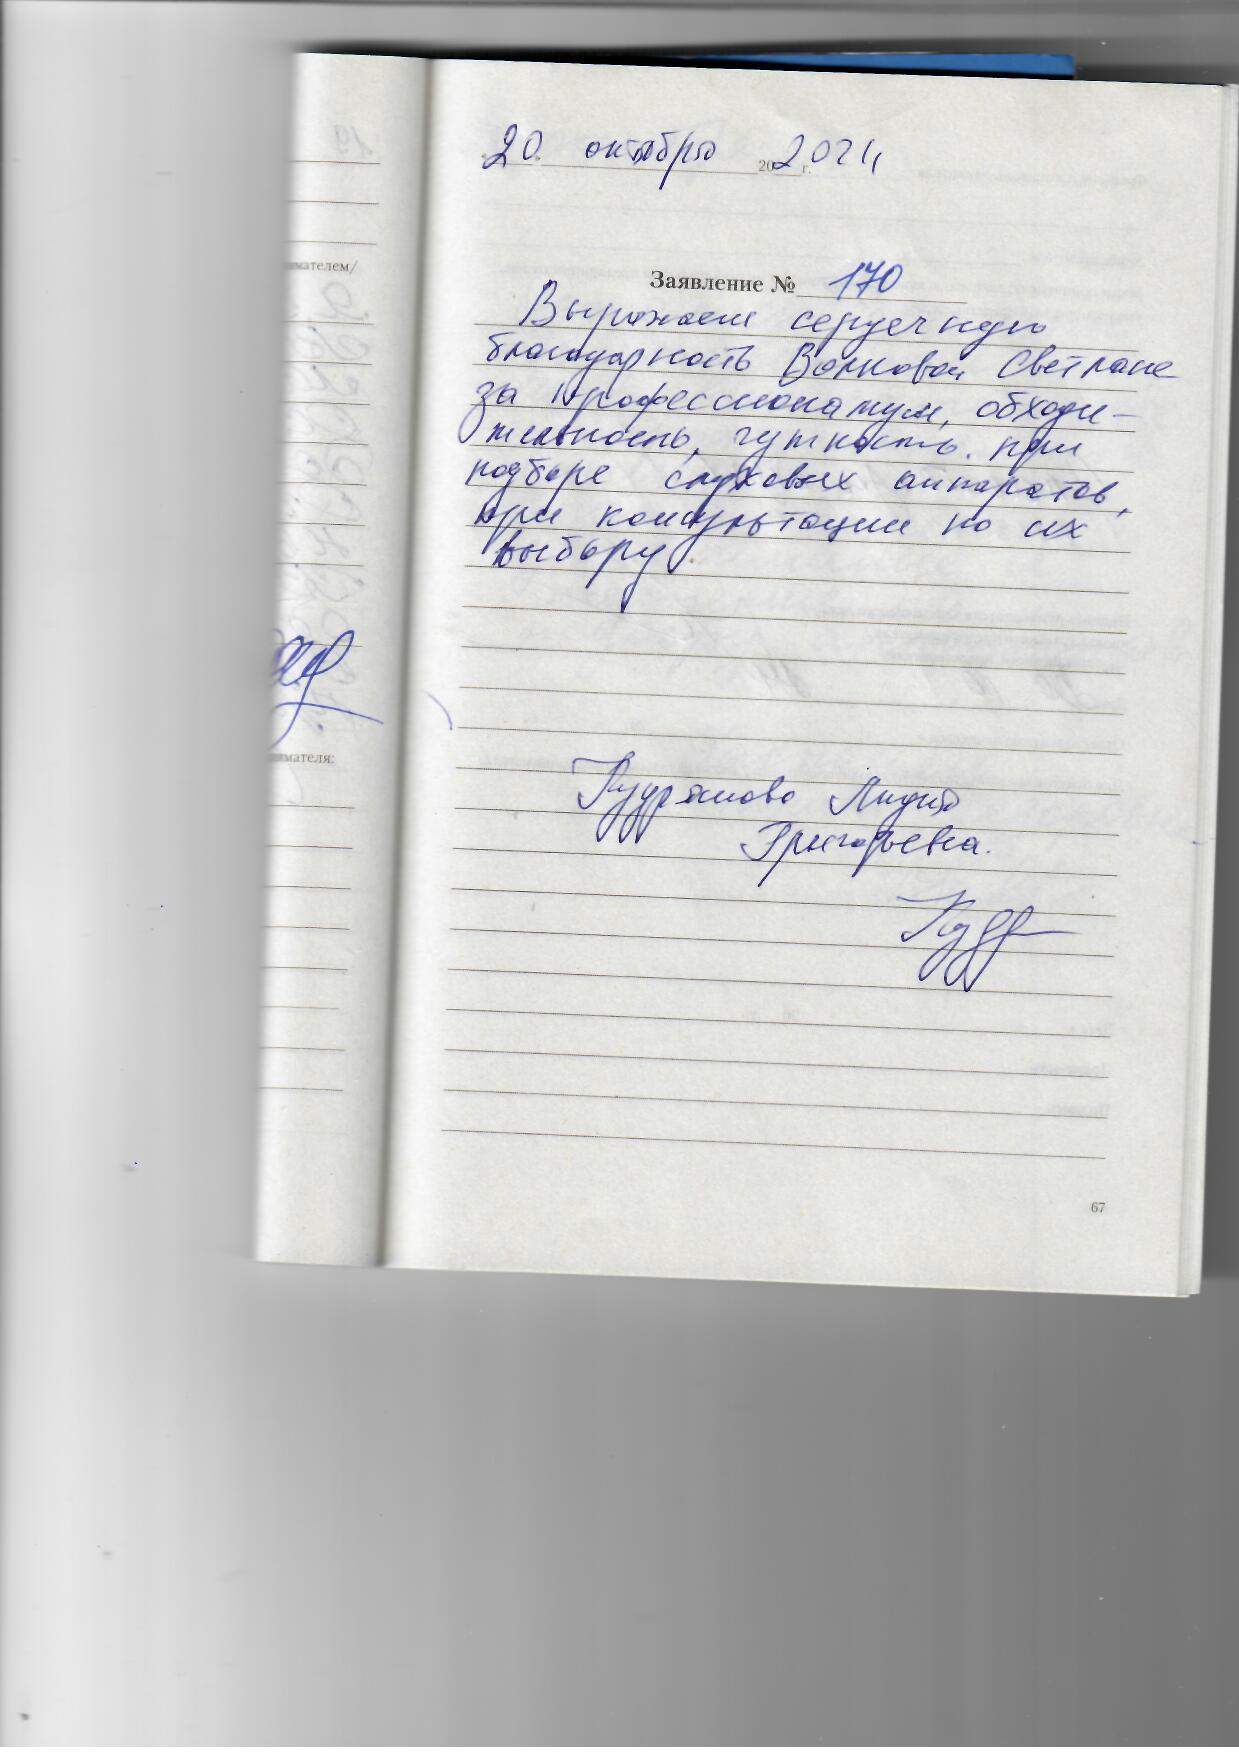 20 октября 20 2024 г.
Заявление № 170
Выражаем сердечную
благодарность Волковой Светлане
за профессионализм, обходи-
тельность, чуткость при
подборе слуховых аппаратов,
при консультации по их
выбору.
Лидия
Григорьевна.
67
19
имателем/
имателя: